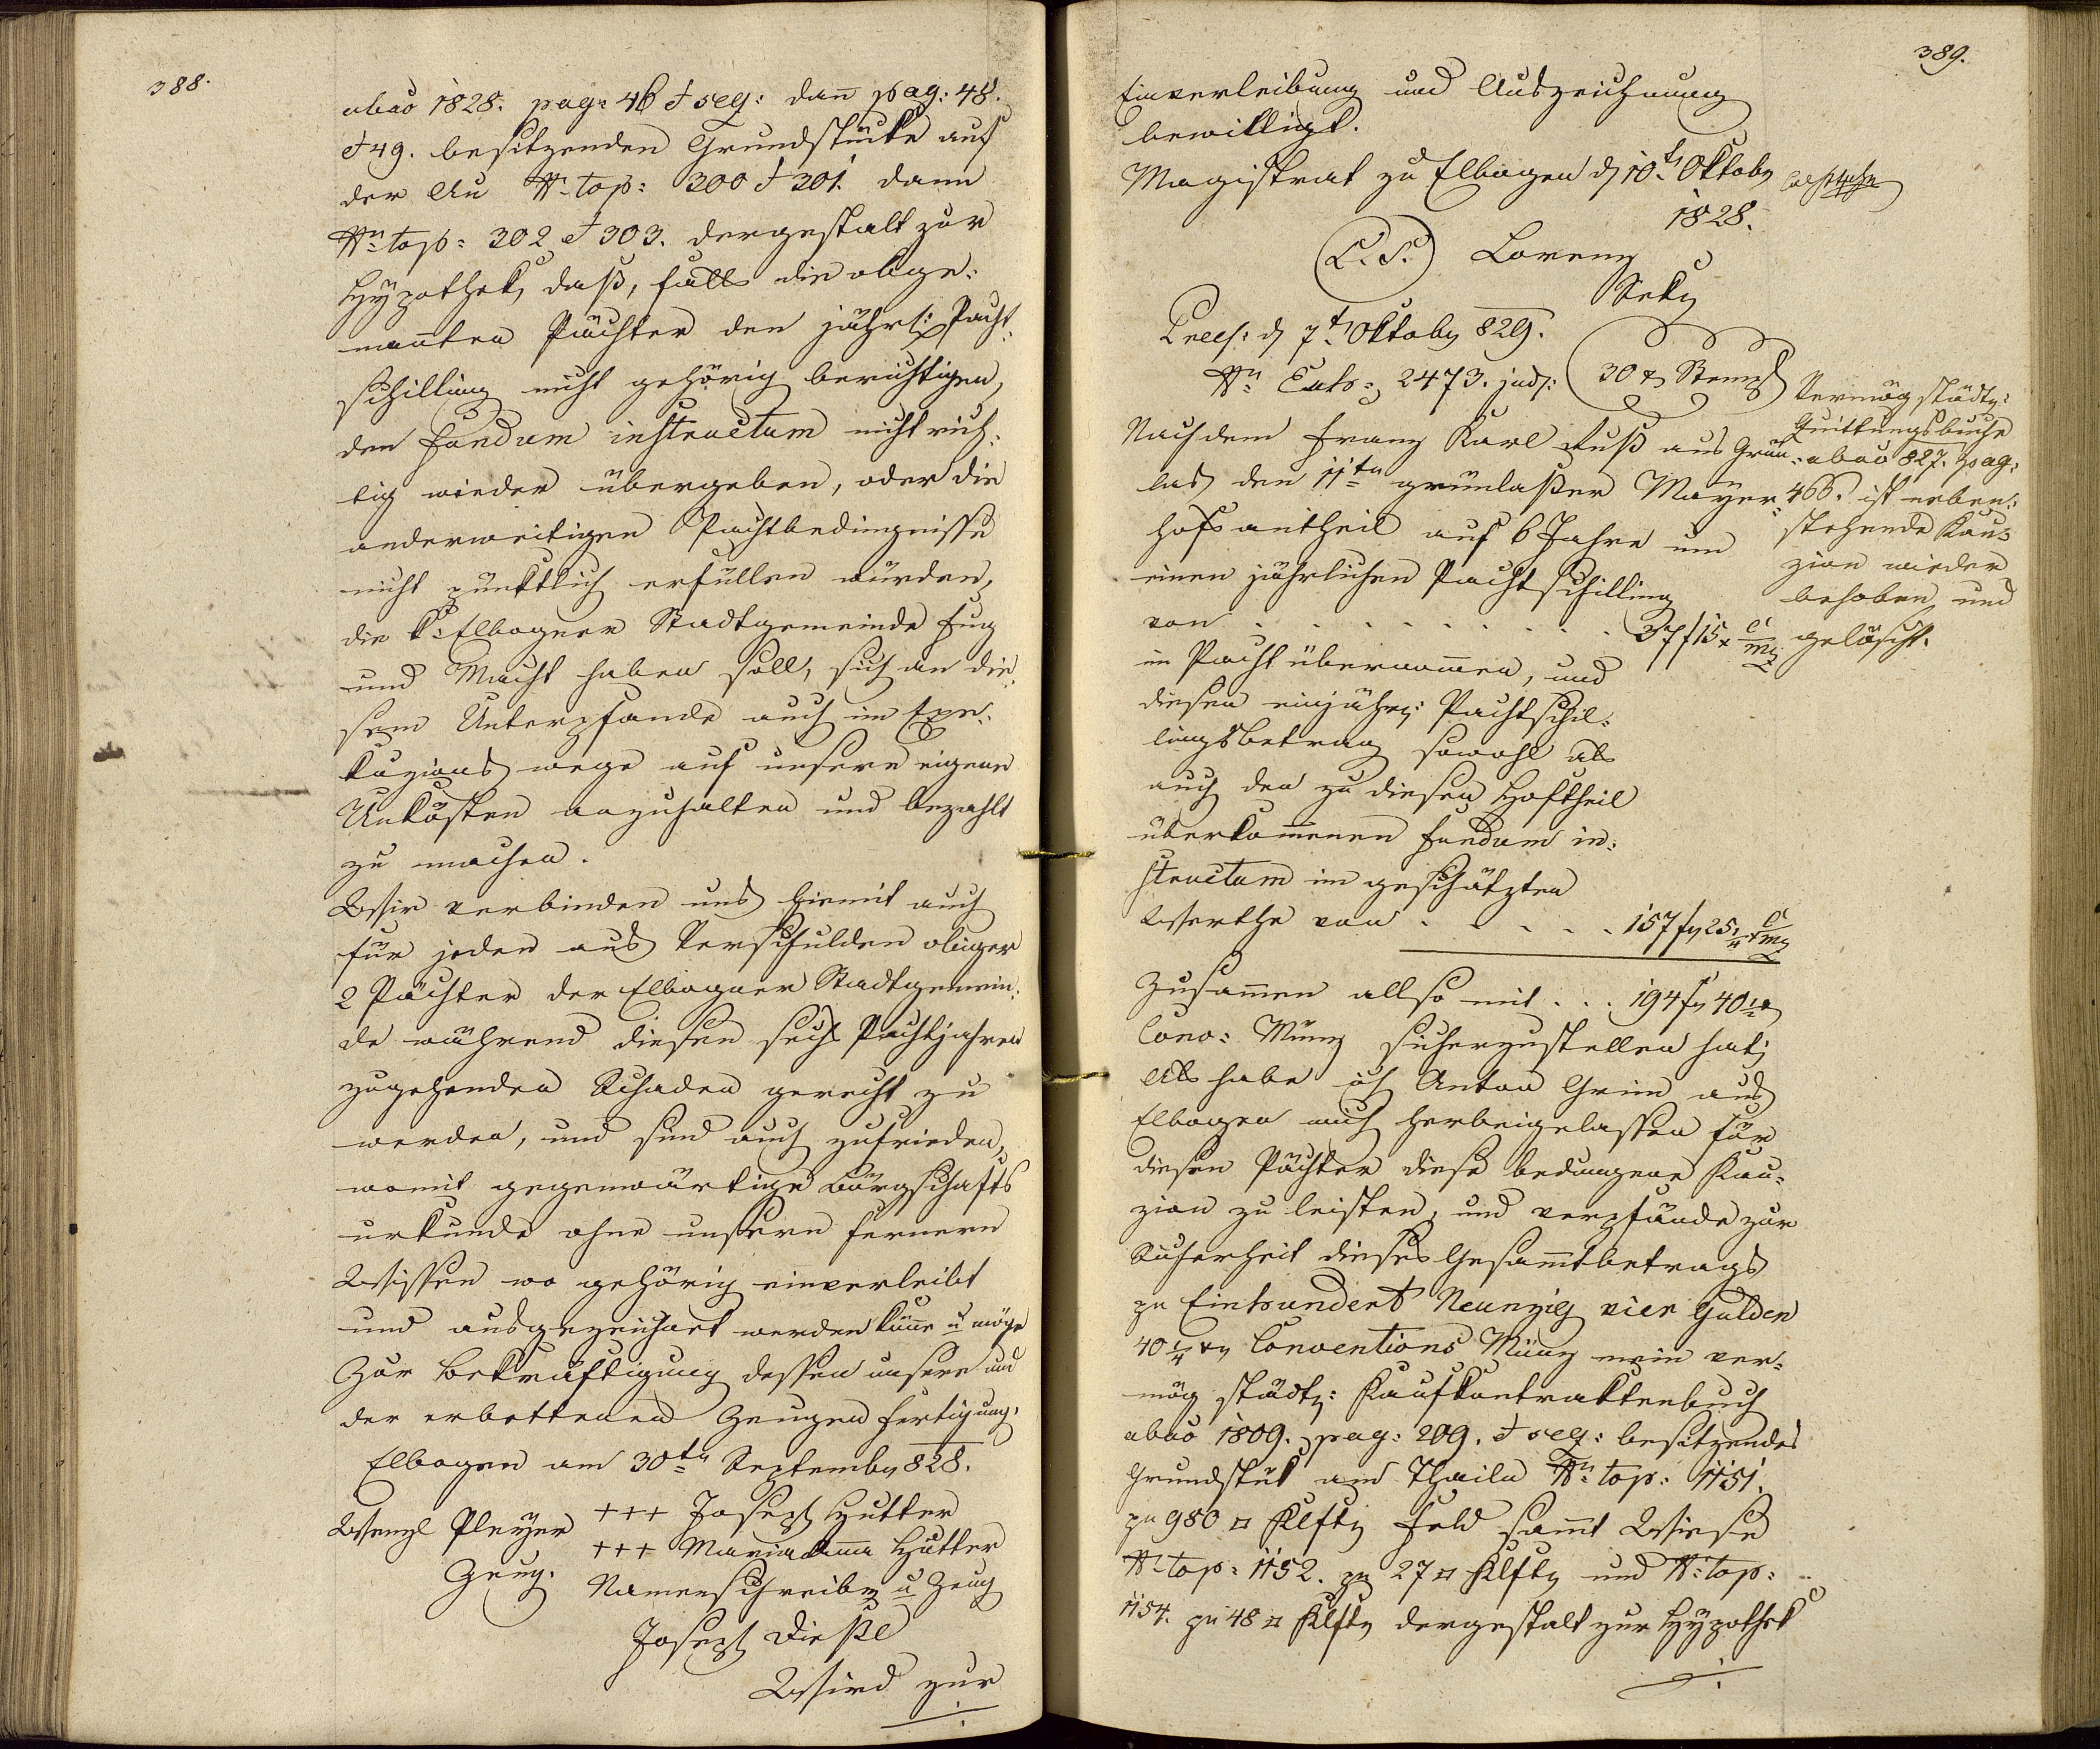 388.
abao 1828. pag: 46 & seq: dañ pag: 48.
& 49. besitzenden Grundstücke auf
der Au N. top: 300 & 301. dann
Nr. top: 302 & 303. dergestalt zur
Hypothek, daß, falls die obge:
nannten Pächter den jährl: Pacht:
schilling nicht gehörig berichtigen,
den fundum instructum nicht rich:
tig wieder übergeben, oder die
anderweitigen Pachtbedingnisse
nicht pünktlich erfüllen würden,
die k: Elbogner Stadtgemeinde Fug
und Macht haben soll, sich an die:
sem Unterpfande auch im Exe:
kuzions wege auf unsere eigene
Unkösten anzuhalten und bezahlt
zu machen.
Wir verbinden uns hiemit auch
für jeden aus Verschulden obiger
2 Pächter der Elbogner Stadtgemein:
de während diesen sechs Pachtjahren
zugehenden Schaden gerecht zu
werden, und sind auch zufrieden,
womit gegenwärtige Bürgschafts
urkunde ohne unseren fernern
Wissen wo gehörig einverleibt
und ausgezeichnet werden könne u möge
Zur Bekräftigung dessen unsere und
der erbettenen Zeugen Fertigung.
Elbogen am 30ten Septemb 828.
Wenzl Pleyer +++ Joseph Hutter
+++ Mariaanna Hutter
Zeug. Namenschreiber u Zeug
Joseph Dießl
Wird zur
389.
Einverleibung und Auszeichnung
bewilligt.
Magistrat zu Elbogen d 10t Oktob
1828.
(L.S.) Lorenz
Sekr
Præs: d 7t Oktob 829.
Nr Exh: 2473. jud: 30 x Stempl
Nachdem Franz Karl Fuß aus Grün:
las den 11ten grünlaßer Mayer:
hofsantheil auf 6 Jahre um
einen jährlichen Pachtschilling
von . . . . . . . . . 37 f 15 x C Mz
in Pacht übernommen, und
diesen einjähr: Pachtschil:
lingsbetrag sowohl als
auch den zu diesen Hoftheil
überkommenen fundum in:
structum im geschätzten
Werthe von . . . . . 157 f 25 1/4 x C Mz
Zusammen allso mit . . . 194 f 40 1/4 x
Conv: Münz sicherzustellen hat;
Als habe ich Anton Grim aus
Elbogen mich herbeigelassen für
diesen Pächter diese bedungene Kau:
zion zu leisten, und verpfände zur
Sicherheit dieses Gesammtbetrags
zu Einhundert Neunzig vier Gulden
40 1/4 x Conventions Münz mein ver:
mög städt: Kaufkontraktenbuch
abao 1809. pag: 209. & seq: besitzendes
Grundstük am Thailn Nr top: 1151.
zu 980 □ Klft Feld sammt Wiese
Nr top: 1152. zu 27 □ Klft und Nr top:
1154. zu 48 □ Klft dergestalt zur Hypothek
Vermög städt:
Quittungsbuche
abao 827. pag:
466. ist neben:
stehende Kau:
zion wieder
behoben und
gelöscht.